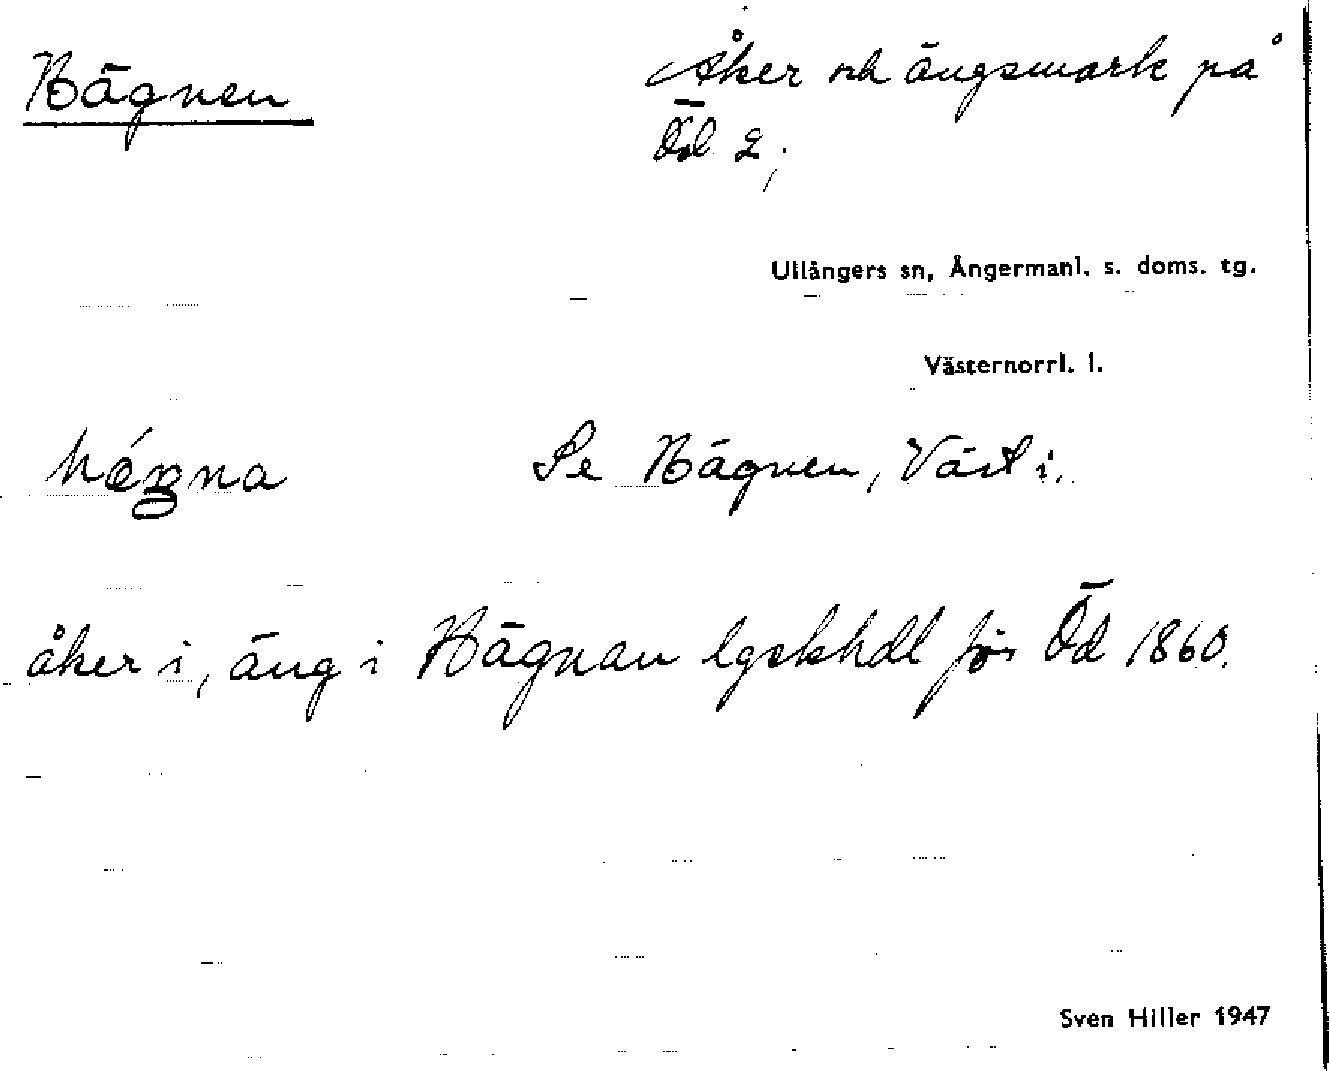 Hägnen
Åker och ängsmark på
Öd 2;
Ullångers sn, Ångermanl. s. doms. tg.
Västernorrl. l.
Se Hägnen, Väst i.
åker i, äng i Hägnan lgskhdl för Öd 1860.
Sven Hiller 1947